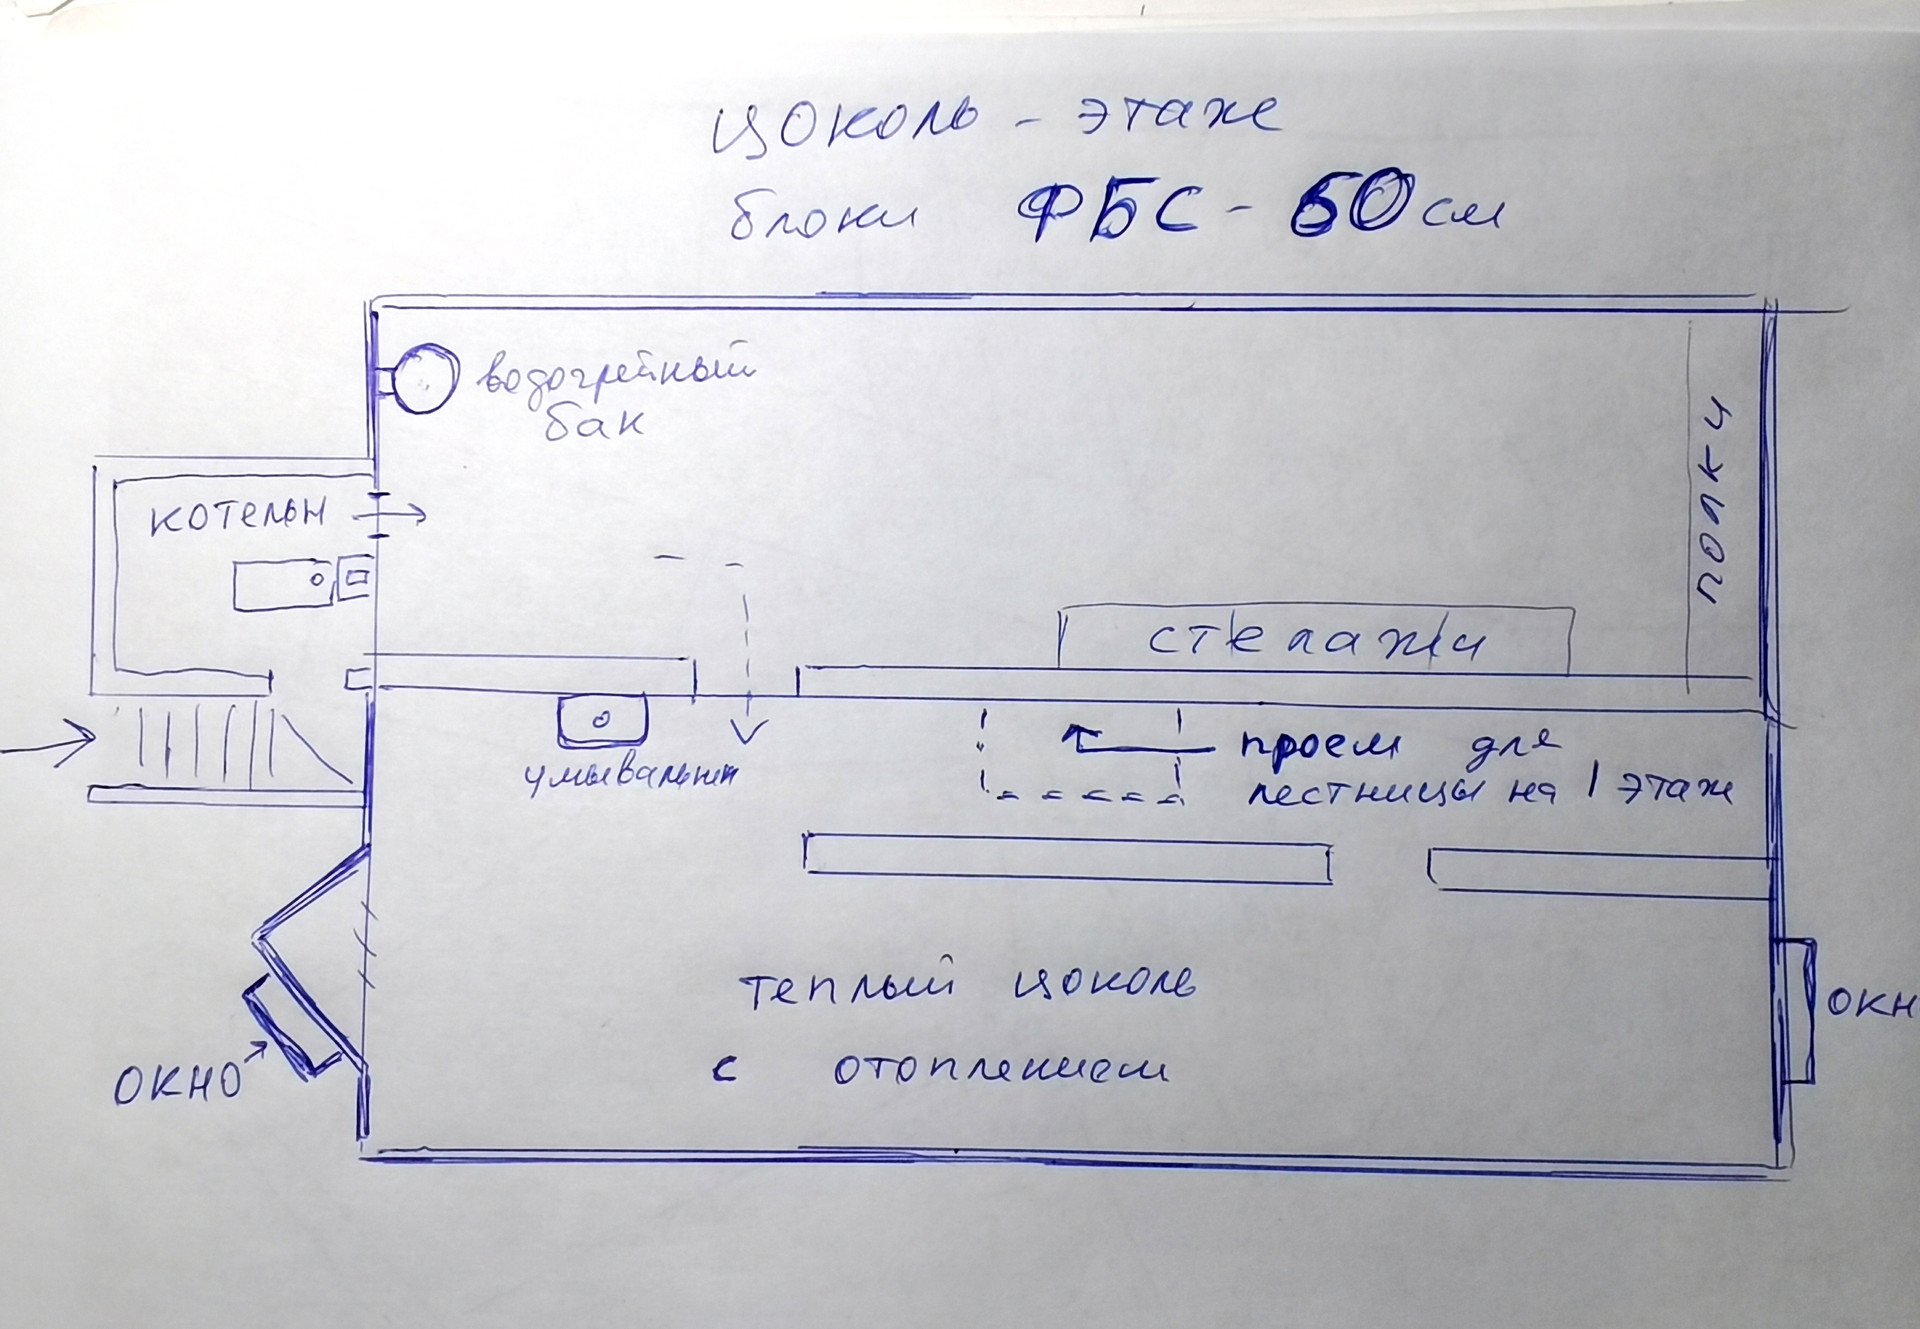 цоколь - этаж
блоки ФБС - 60 см
водогрейный
бак
котельн
полки
стелажи
умывальник
проем для
лестницы на 1 этаж
теплый цоколь
с отоплением
окно
окн